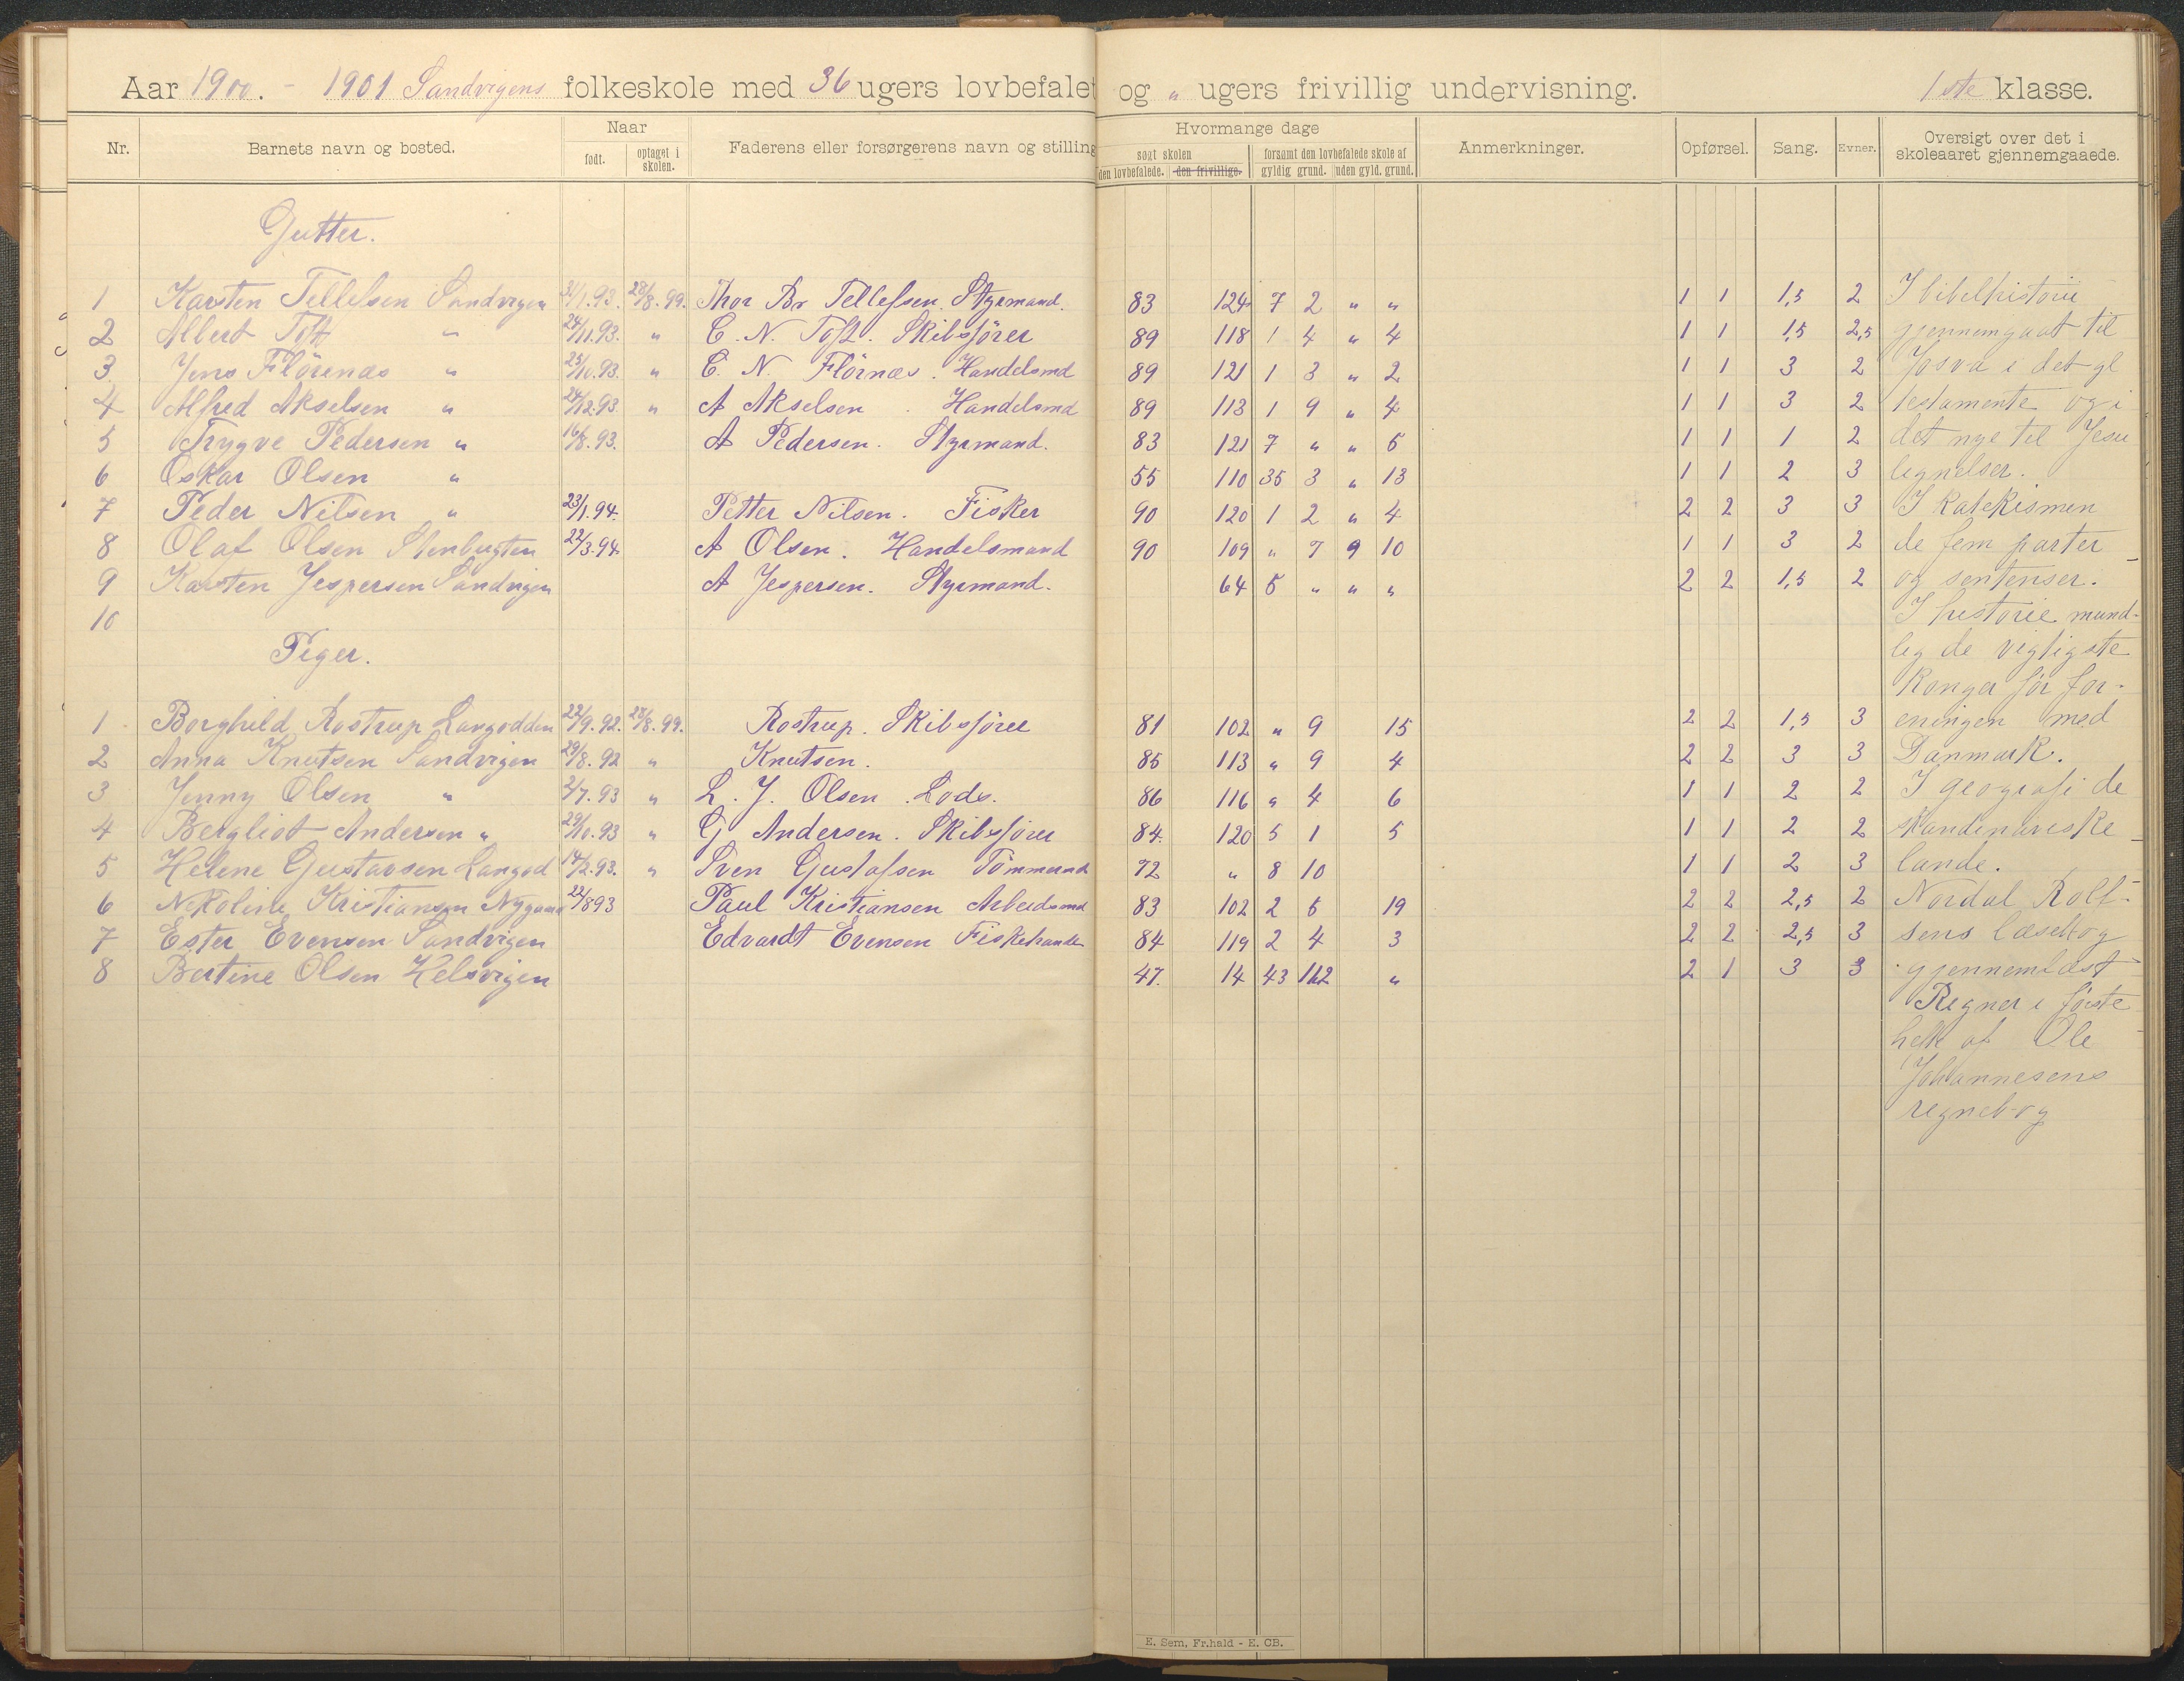 Aar 1900. - 1901 Sandvigens folkeskole med 36 ugers lovbefalet og " ugers frivillig undervisning. 1ste klasse.
Nr. Barnets navn og bosted. Naar født. optaget i skolen. Faderens eller forsørgerens navn og stilling Hvormange dage søgt skolen den lovbefalede. den frivillige. forsømt den lovbefalede skole af gyldig grund. uden gyld. grund. Anmerkninger. Opførsel. Sang. Evner. Oversigt over det i skoleaaret gjennemgaaede.
Gutter.
1 Karsten Tellefsen Sandvigen 31/1.93. 28/8.99. Thor Br Tellefsen. Styrmand. 83 124 7 2 " " 1 1 1,5 2 I bibelhistorie
2 Albert Toft " 24/11.93. " C. N. Toft. Skibsfører 89 118 1 4 " 4 1 1 1,5 2,5 gjennemgaat til
3 Jens Flörenæs " 25/10.93. " C. N. Flörnæs. Handelsmd 89 121 1 3 " 2 1 1 3 2 Josva i det gl
4 Alfred Akselsen " 24/12.93. " A Akselsen. Handelsmd 89 113 1 9 " 4 1 1 3 2 testamente og i
5 Trygve Pedersen " 16/8.93. A Pedersen. Styrmand. 83 121 7 " " 5 1 1 1 2 det nye til Jesu
6 Oskar Olsen " 55 110 35 3 " 13 1 1 2 3 lignelser.
7 Peder Nilsen " 23/1.94. Petter Nilsen. Fisker 90 120 1 2 " 4 2 2 3 3 I katekismen
8 Olaf Olsen Stenbugten 22/3.94. A Olsen. Handelsmand 90 109 " 7 9 10 1 1 3 2 de fem parter
9 Karsten Jespersen Sandvigen A Jespersen. Styrmand. 64 5 " " " 2 2 1,5 2 og sentenser.
10 I historie mund-
Piger. lig de vigtigste
Konger før for-
1 Borghild Rostrup Langodden 22/9.92. 28/8.99. Rostrup. Skibsfører 81 102 " 9 15 2 2 1,5 3 eningen med
2 Anna Knutsen Sandvigen 29/8.92 " Knutsen. 85 113 " 9 4 2 2 3 3 Danmark.
3 Jenny Olsen " 2/7.93 " L. J. Olsen. Lods. 86 116 " 4 6 1 1 2 2 I geografi de
4 Bergliot Andersen " 29/10.93 " G Andersen. Skibsfører 84. 120 5 1 5 1 1 2 2 skandinaviske
5 Helene Gustavsen Langod 14/2.93. " Sven Gustafsen Tömmermd 72 " 8 10 1 1 2 3 lande.
6 Nikoline Kristiansen Nygaard 22/8 93 Paul Kristiansen Arbeidsmd 83 102 2 5 19 2 2 2,5 2 Nordal Rolf-
7 Ester Evensen Sandvigen Edvardt Evensen Fiskehandler 84 119 2 4 3 2 2 2,5 3 sens læsebog
8 Bertine Olsen Kelsvigen 47. 14 43 112 " 2 1 3 3 gjennemlæst
Regner i første
hefte af Ole
Johannesens
regnebog
E. Sem, Fr.hald - E. CB.